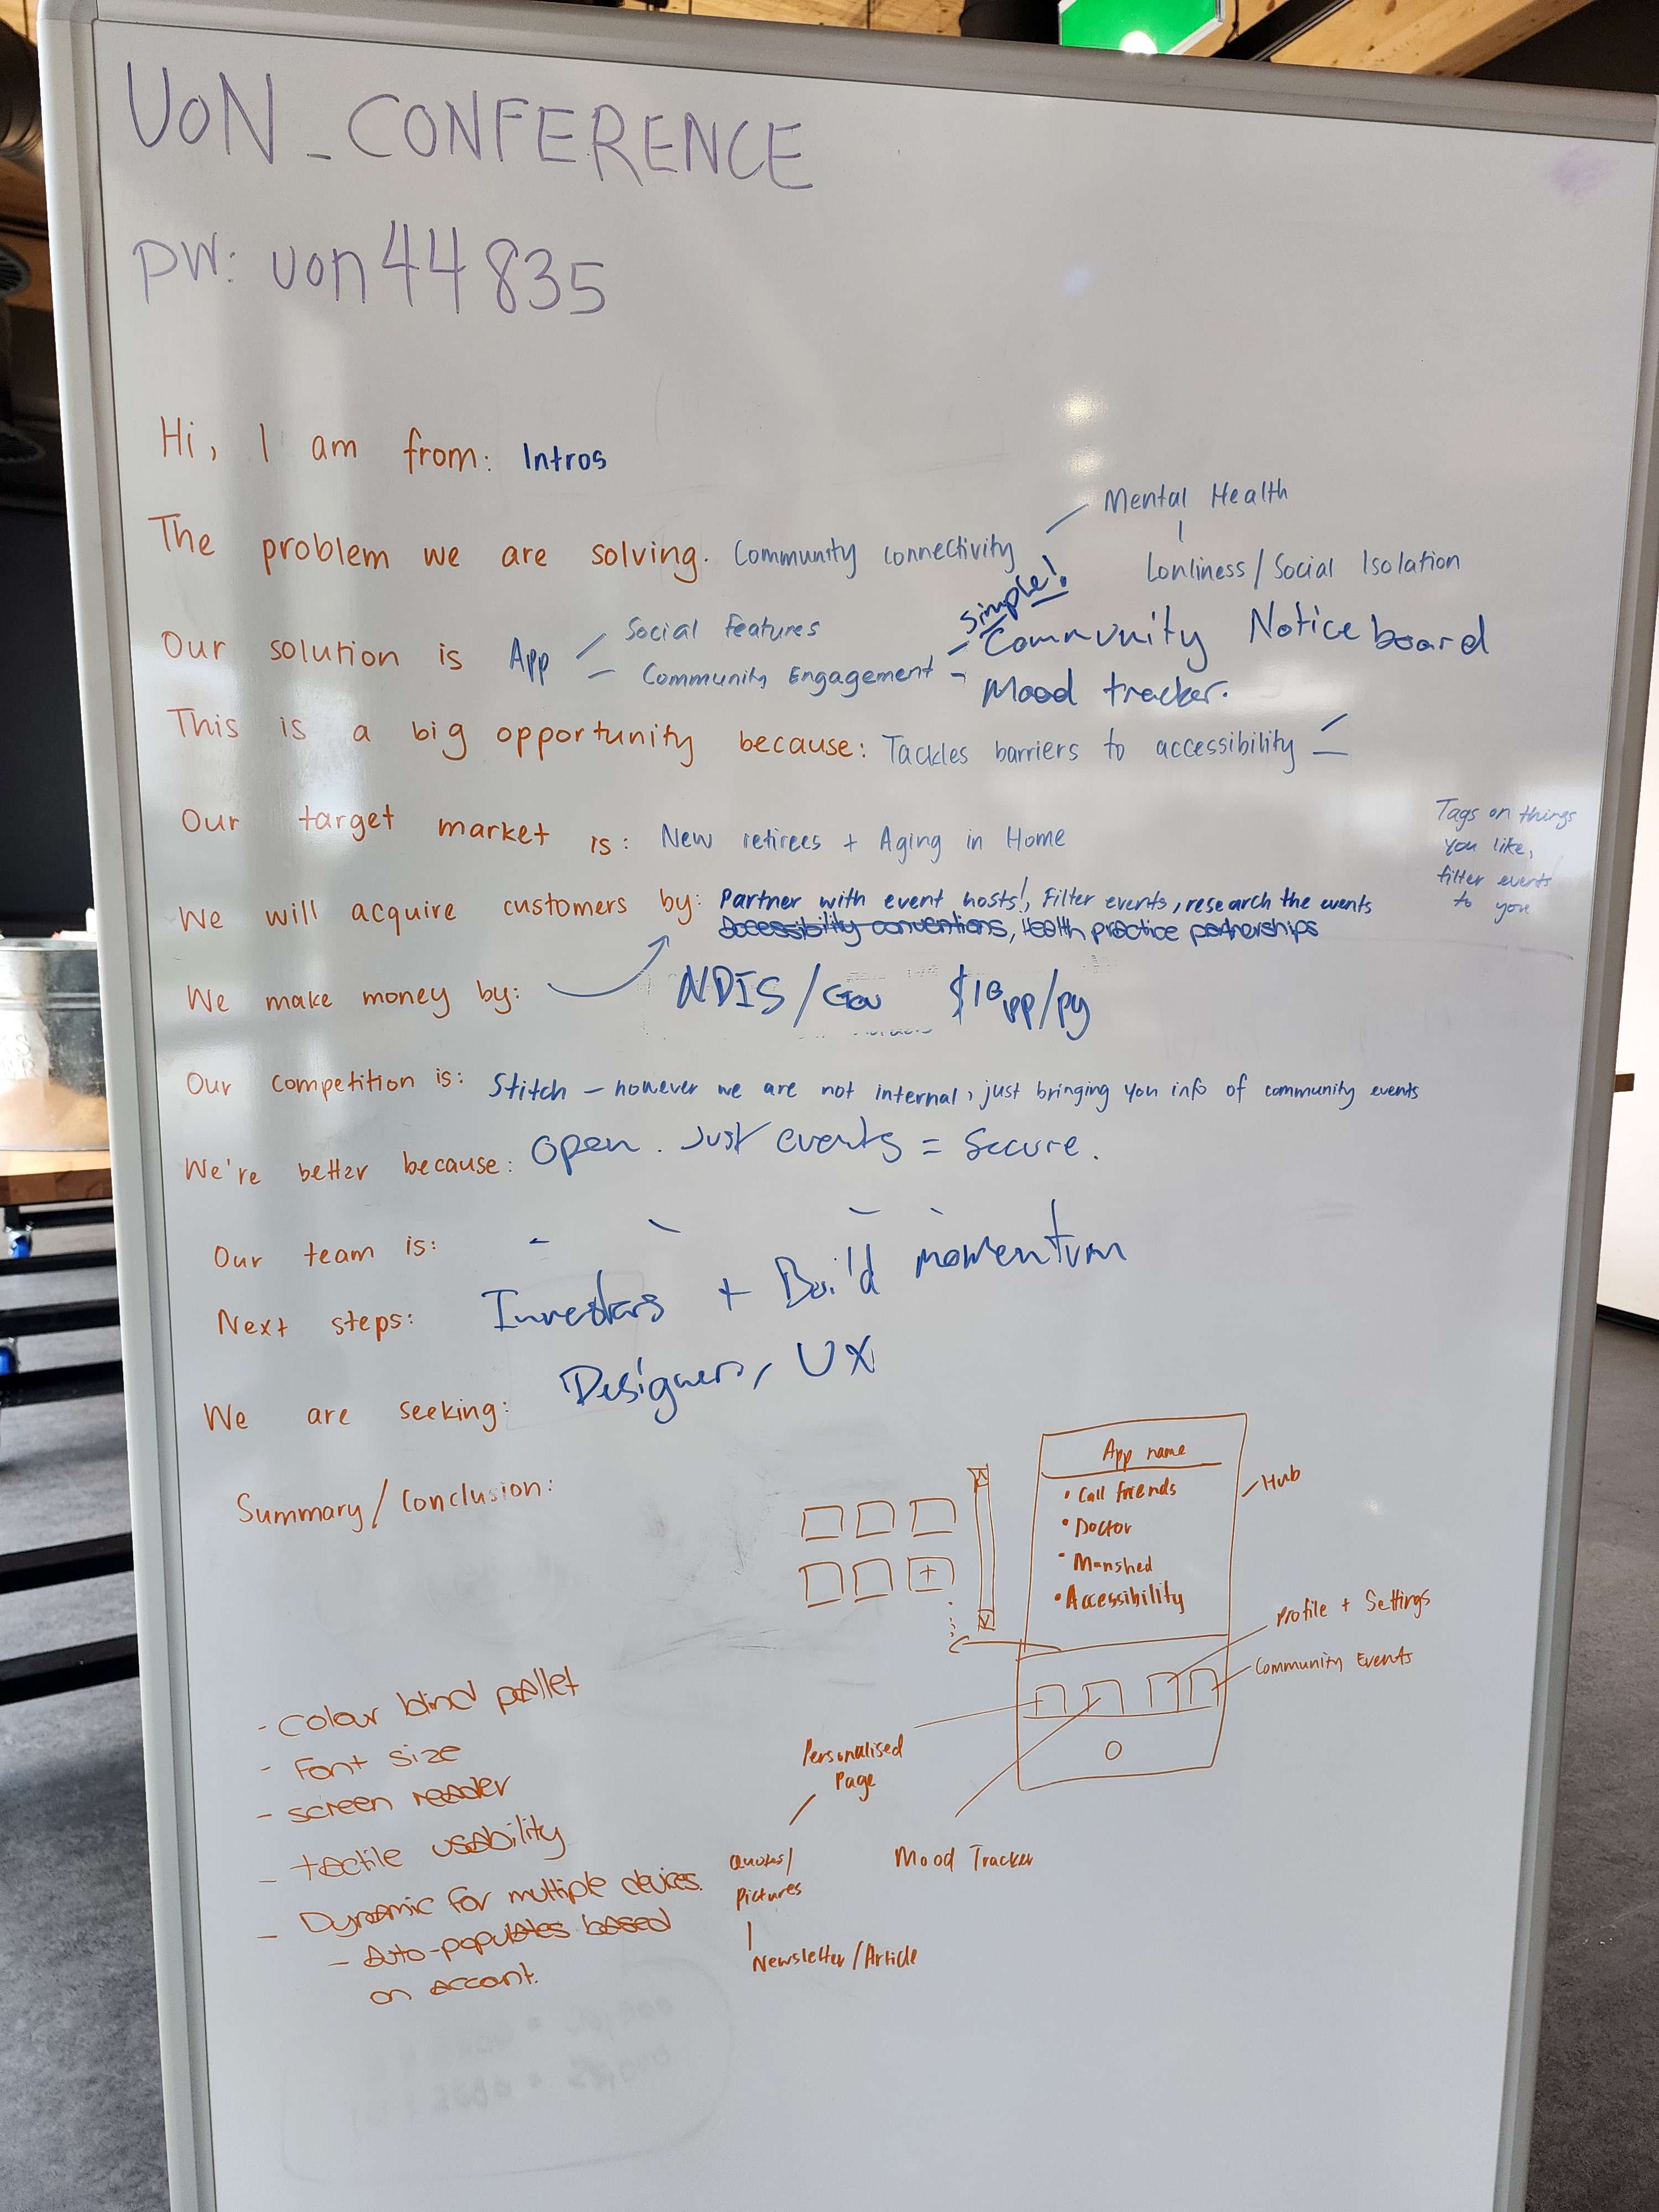 UoN_CONFERENCE
pw: uon44835
Hi, I am from: Intros
Mental Health
The problem we are solving. Community connectivity
Lonliness/Social Isolation
Simple!
Our solution is App
Social Features
Community Engagement
Community Noticeboard
Mood tracker.
This is a big opportunity because: Tackles barriers to accessibility
Our target market is: New retirees + Aging in Home
Tags on things
you like,
filter events
to you
We will acquire customers by: Partner with event hosts!, Filter events, research the events
Accessibility conventions, Health practice partnerships
We make money by: NDIS/Gov $10pp/py
Our competition is: Stitch - however we are not internal, just bringing you info of community events
We're better because: Open. Just events = Secure.
Our team is:
Next steps: Investors + Build momentum
We are seeking: Designers, UX
Summary/Conclusion:
App name
• Call friends
• Doctor
• Manshed
• Accessibility
Hub
Profile + Settings
Community Events
Personalised
Page
Mood Tracker
Quotes/
Pictures
Newsletter/Article
- Colour blind pallet
- Font size
- screen reader
- tactile usability
- Dynamic for multiple devices.
- Auto-populates based
on account.